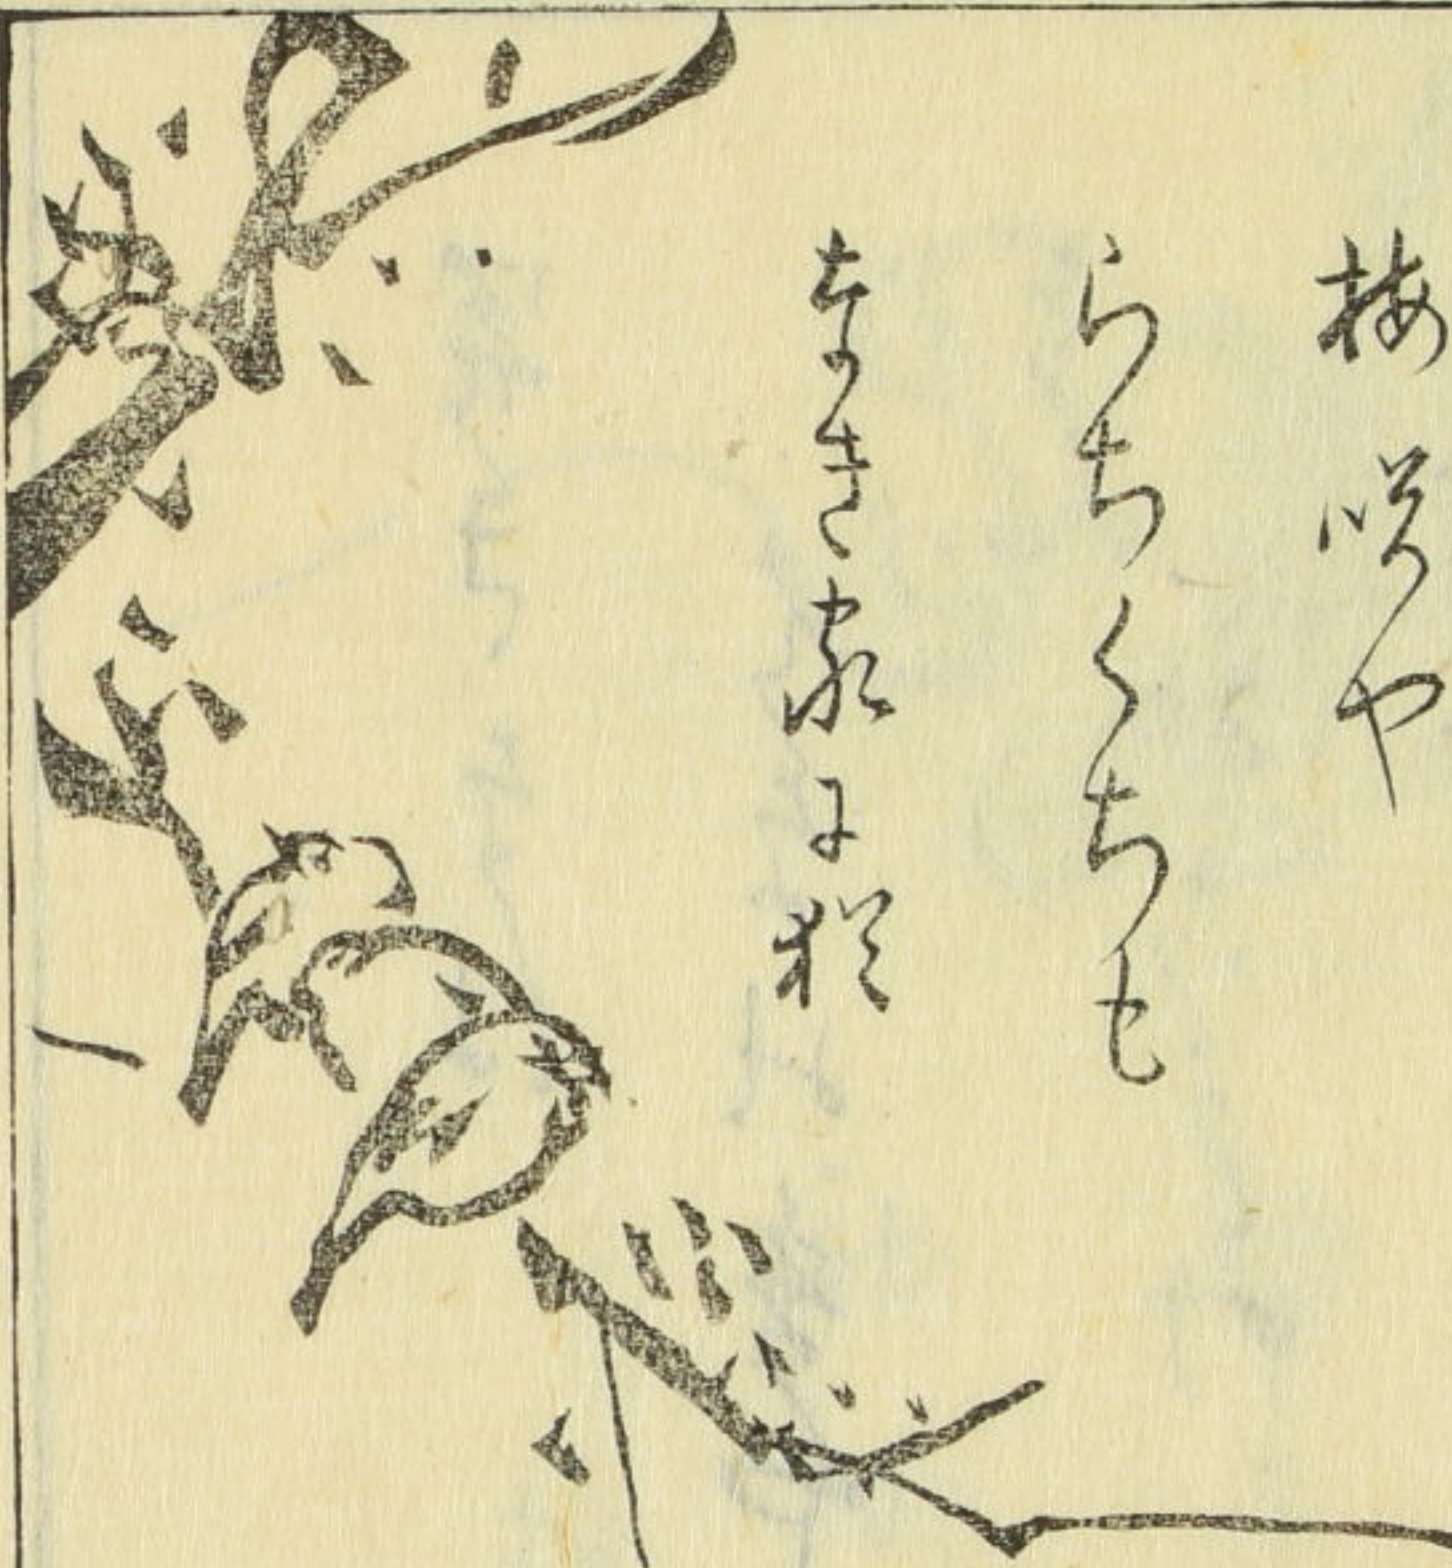 梅咲や
らちくちも
なき家に猶